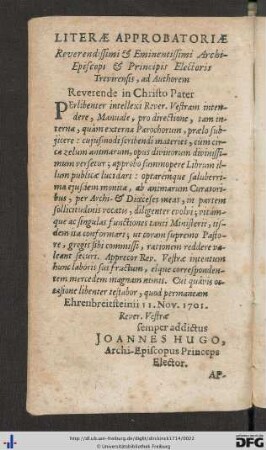 LITERÆ APPROBATORIÆ
Reverendissimi & Eminentissimi Archi-
Episcopi & Principis Electoris
Trevirensis, ad Authorem
Reverende in Christo Pater
PErlibenter intellexi Rever. Vestram inten-
dere, Manuale, pro directione, tam in-
terna, quàm externa Parochorum, prælo sub-
jicere: cujusmodi scribendi materies, cum cir-
ca zelum animarum, opus divinorum divinissi-
mum versetur; approbo summopere Librum il-
lum publicæ luci dari: optaremque saluberri-
ma ejusdem monita, ab animarum Curatori-
bus, per Archi- & Diœceses meas, in partem
sollicitudinis vocatis, diligenter evolvi; vitam-
que ac singulas functiones tanti Ministerii, ii-
sdem ita conformari; ut coram supremo Pasto-
re, gregis sibi commissi, rationem reddere va-
leant securi. Apprecor Rev. Vestræ intentum
hunc laboris sui fructum, eique corresponden-
tem mercedem magnam nimis. Cui quâvis oc-
casione libenter testabor, quod permaneam
Ehrenbreitsteinii 11. Nov. 1701.
Rever. Vestræ
semper addictus
JOANNES HUGO,
Archi-Episcopus Princeps
Elector.
AP-
http://dl.ub.uni-freiburg.de/diglit/
© Universitätsbibliothek Freiburg